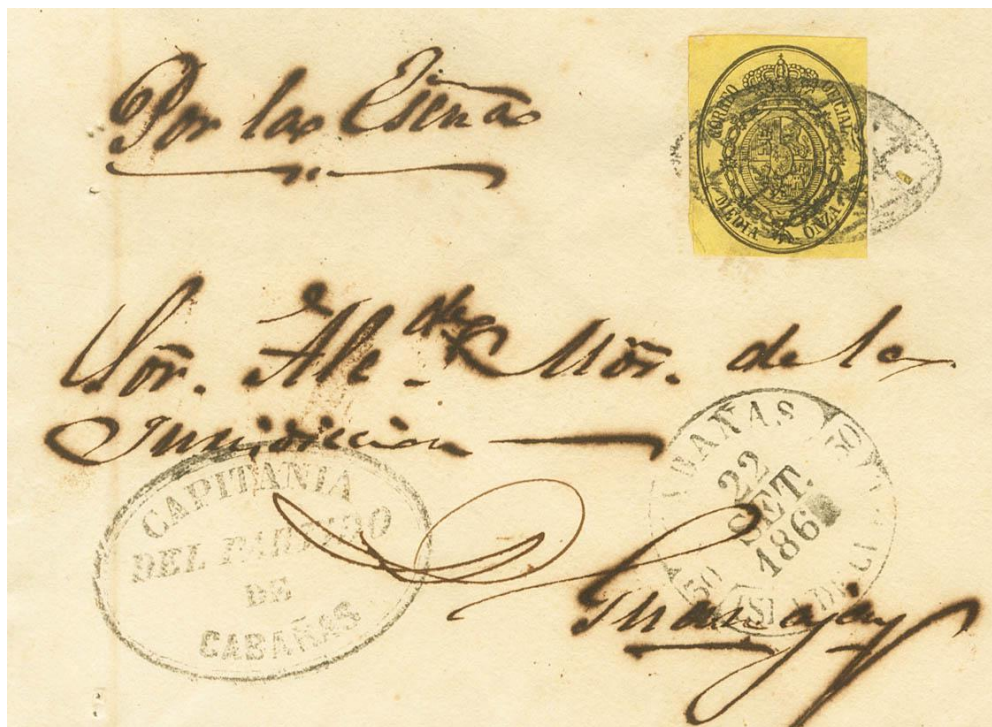 Por las Esenas
CORREO OFICIAL
MEDIA ONZA
Sor. Alc.de Mor. de la
Jurisdiccion
CAPITANIA
DEL PARTIDO
DE
CABAÑAS
CABAÑAS
22
SET.
186
Guanajay